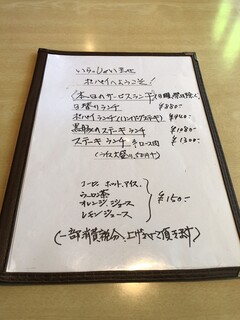 いらっしゃいませ
ポパイへようこそ!
〈本日のサービスランチ〉(日曜、祭日除く)
日替りランチ ¥880-
ポパイランチ(ハンバーグステーキ) ¥940-
黒豚のステーキランチ ¥1080-
ステーキランチ 牛ロース肉 ¥1300-
(ライス大盛り、50円す)
コーヒー ホット、アイス、
ウーロン茶
オレンジ、ジュース ¥150-
レモンジュース
(一部消費税分、上げさせて頂きます)